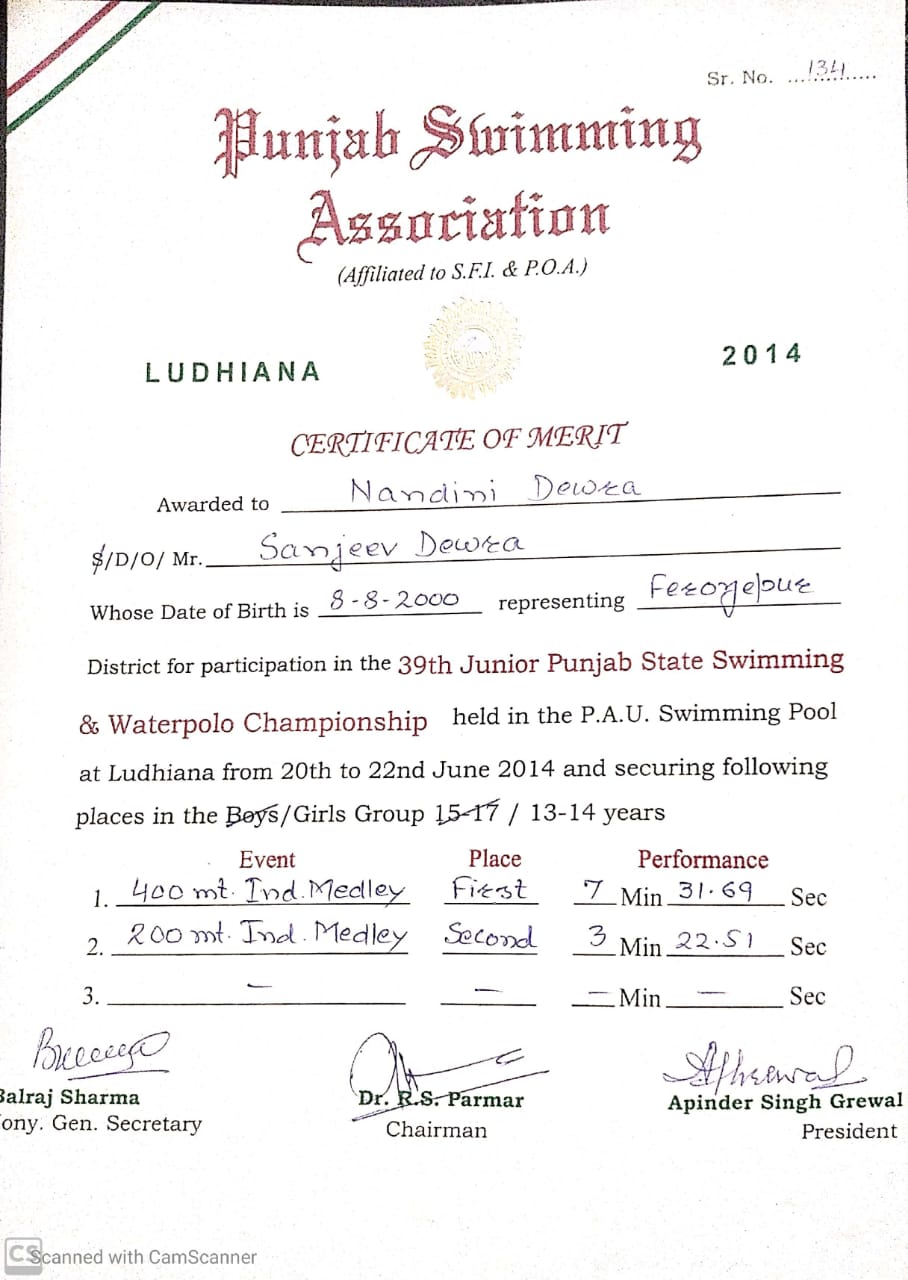 Sr. No. ...1341......
Punjab Swimming
Association
(Affiliated to S.F.I. & P.O.A.)
LUDHIANA 2014
CERTIFICATE OF MERIT
Awarded to Nandini Dewra
S/D/O/ Mr. Sanjeev Dewra
Whose Date of Birth is 8-8-2000 representing Ferozepur
District for participation in the 39th Junior Punjab State Swimming
& Waterpolo Championship held in the P.A.U. Swimming Pool
at Ludhiana from 20th to 22nd June 2014 and securing following
places in the Boys/Girls Group 15-17 / 13-14 years
Event Place Performance
1. 400 mt. Ind. Medley First 7 Min 31.69 Sec
2. 200 mt. Ind. Medley Second 3 Min 22.51 Sec
3. – – – Min – Sec
Balraj Sharma Dr. R.S. Parmar Apinder Singh Grewal
ony. Gen. Secretary Chairman President
CS Scanned with CamScanner